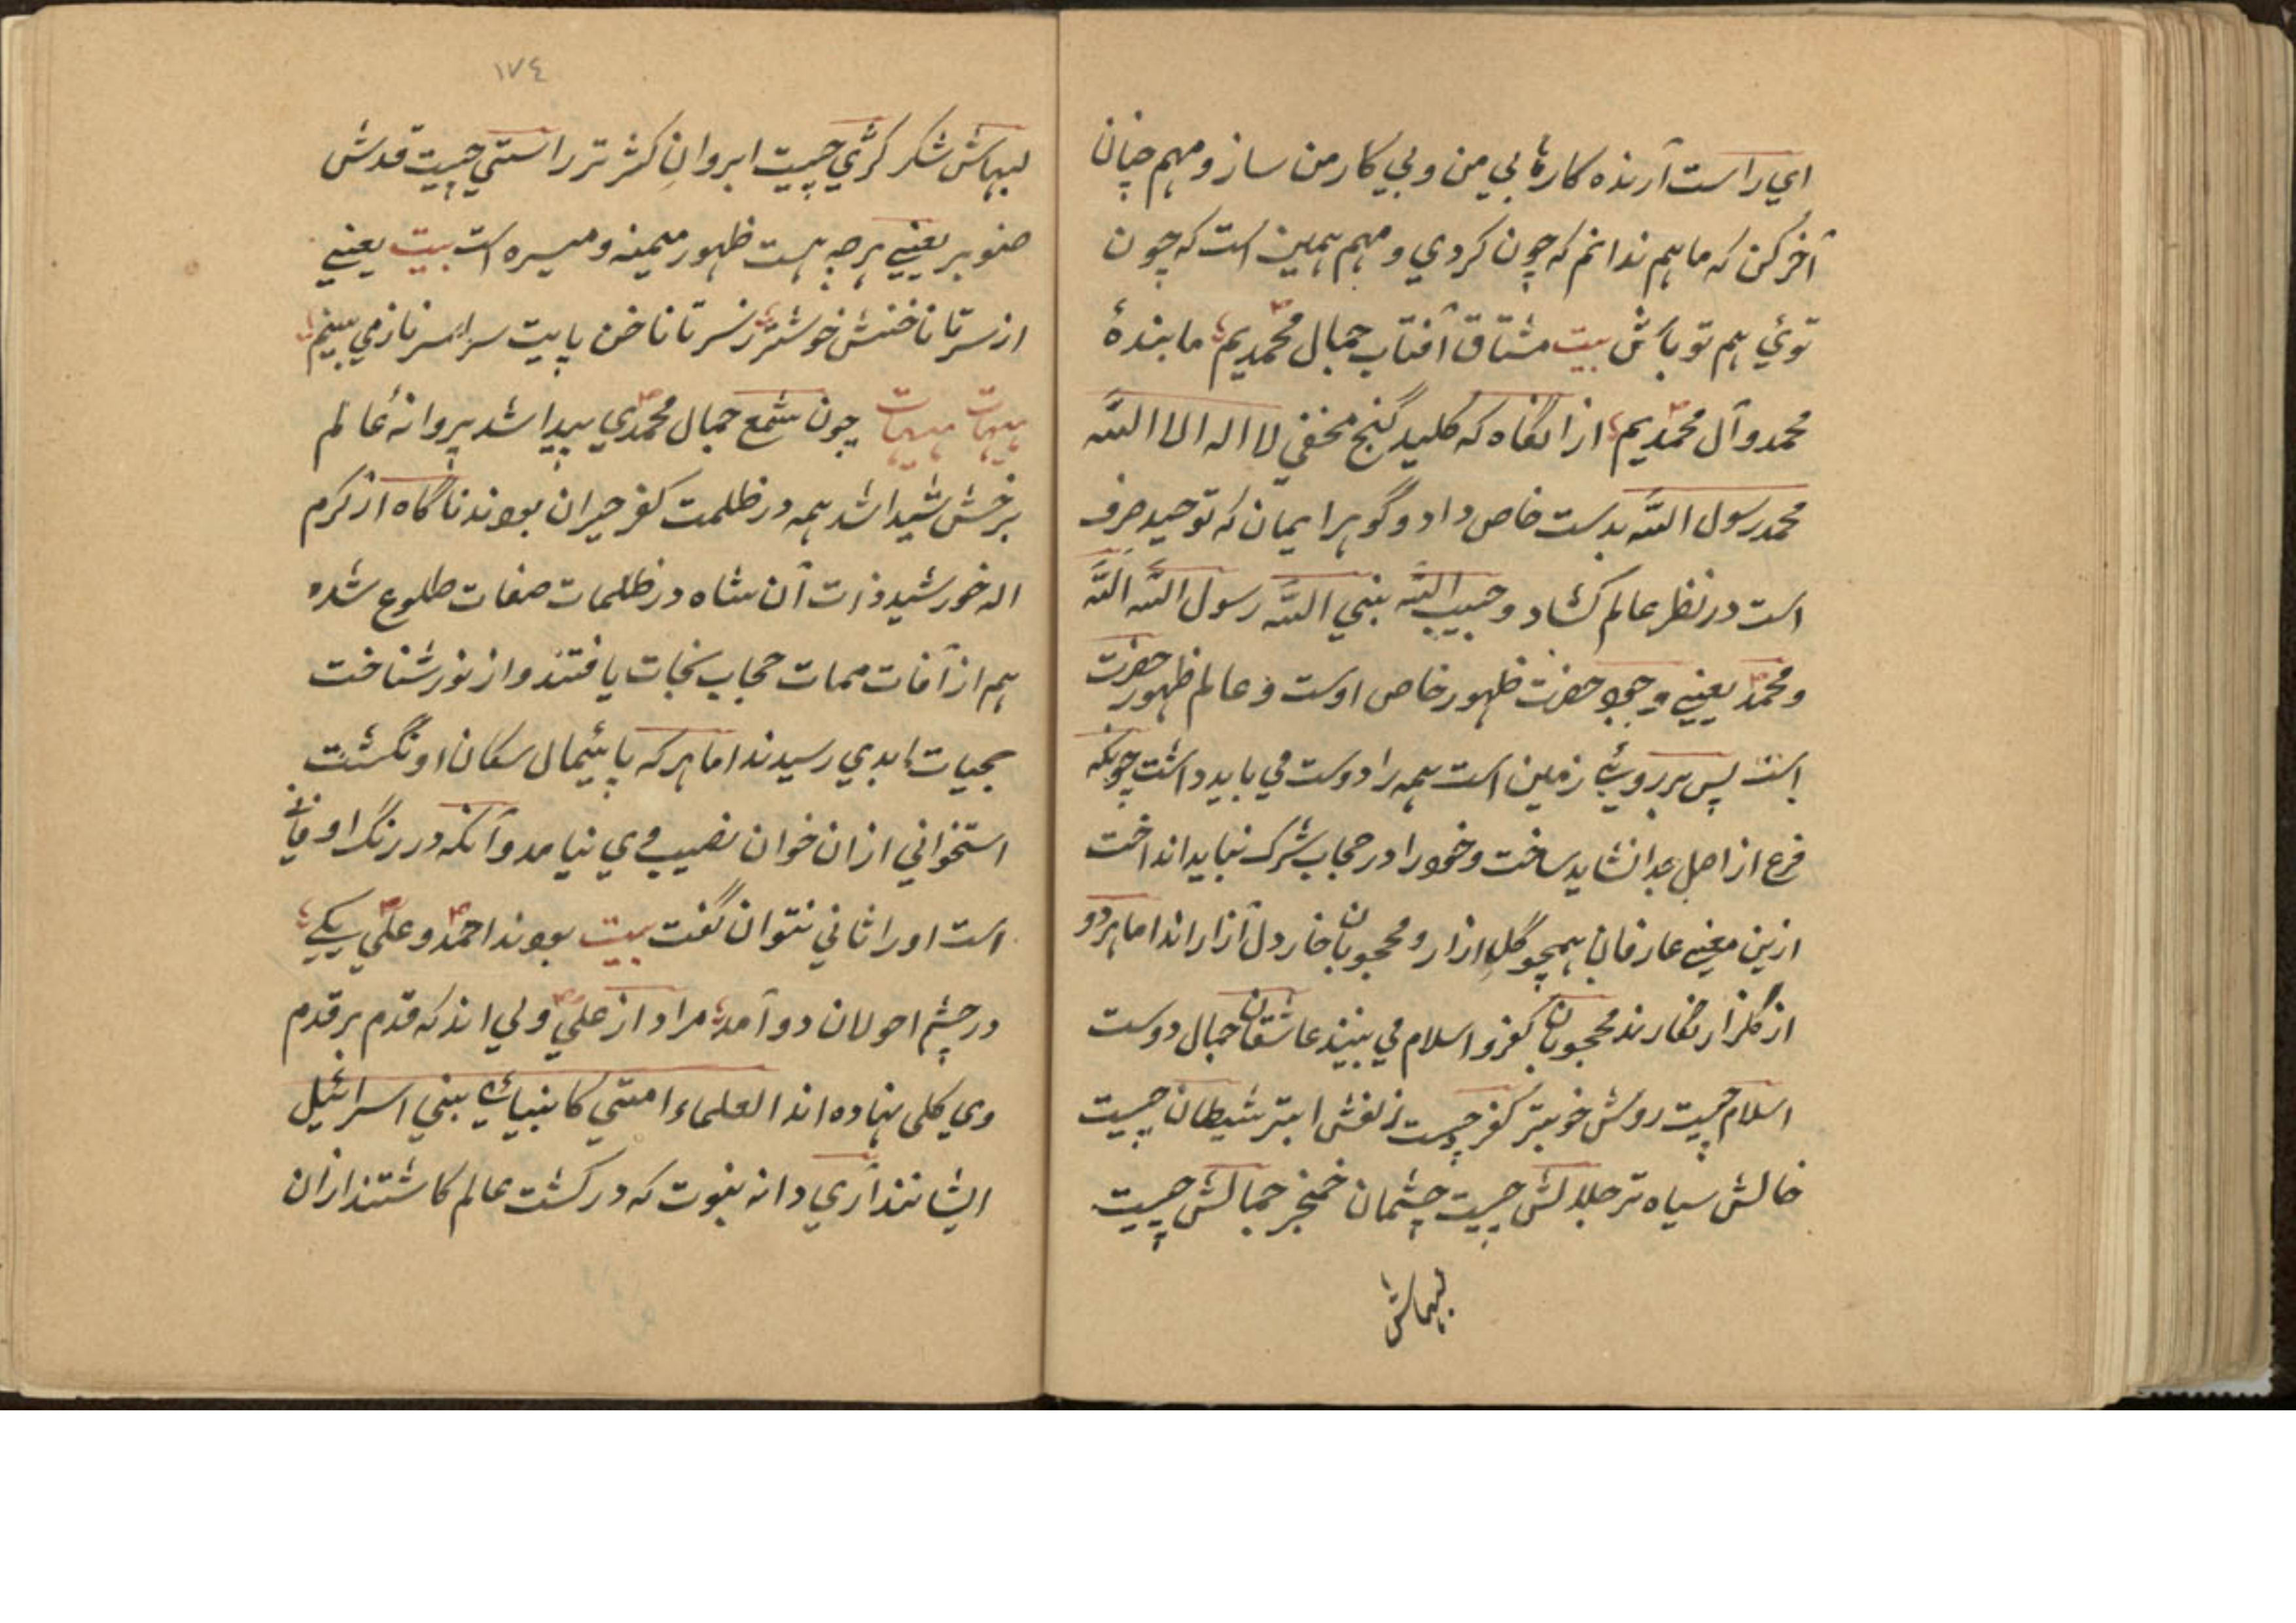 اي راست آرنده كارها بي من و بي كار من ساز و مهم چنان
آخر كن كه ما هم ندانم كه چون كردي و مهم همين است كه چون
توئي هم تو باش بيت مشتاق آفتاب جمال محمديم ما بندهٔ
محمد و آل محمديم از انگاه كه كليد گنج مخفي لا اله الا الله
محمد رسول الله بدست خاص داد و گوهر ايمان كه توحيد صرف
است در نظر عالم كشاد و حبيب الله نبي الله رسول الله الله
و محمد يعني وجود حضرت ظهور خاص اوست و عالم ظهور حضرت
است پس هر بروئے زمين است همه را دوست مي بايد داشت چونكه
فرع از اصل جدا نشايد ساخت و خود را در حجاب شرك نبايد انداخت
ازين معني عارفان همچو گل ازار و محجوبان خار دل آزار اند اما هر دو
از گلزار نگارند محجوبان كفر و اسلام مي بينند عاشقان جمال دوست
اسلام چيست رويش خوبتر كفر چيست زلفش ابتر شيطان چيست
خالش سياه تر جلالش چيست چشمان خنجر جمالش چيست
لبهاش
١٧٤
لبهاش شكر كژي چيست ابروان كژ تر راستي چيست قدش
صنوبر يعني هر چه هست ظهور ميمنه و ميسره است بيت يعني
از سر تا ناخنش خوشتر ز سر تا ناخن پايت سراسر ناز مي بينم
هيهات هيهات چون شمع جمال محمدي پيدا شد پروانهٔ عالم
برخش شيدا شد همه در ظلمت كفر حيران بودند ناگاه از كرم
اله خورشيد ذات آن شاه در ظلمات صفات طلوع شده
هم از آفات ممات حجاب نجات يافتند و از نور شناخت
بحيات ابدي رسيدند اما هر كه پائيمال سكان او نگشت
استخواني ازان خوان نصيب وي نيامد و آنكه در رنگ او فاني
است او را ثاني نتوان گفت بيت بودند احمد و علي يكے
در چشم احولان دو آمد مراد از علي ولي اند كه قدم بر قدم
وي كلي نهاده اند العلماء امتي كانبيائے بني اسرائيل
ايشانند آري دانه نبوت كه در كشت عالم كاشتند ازان